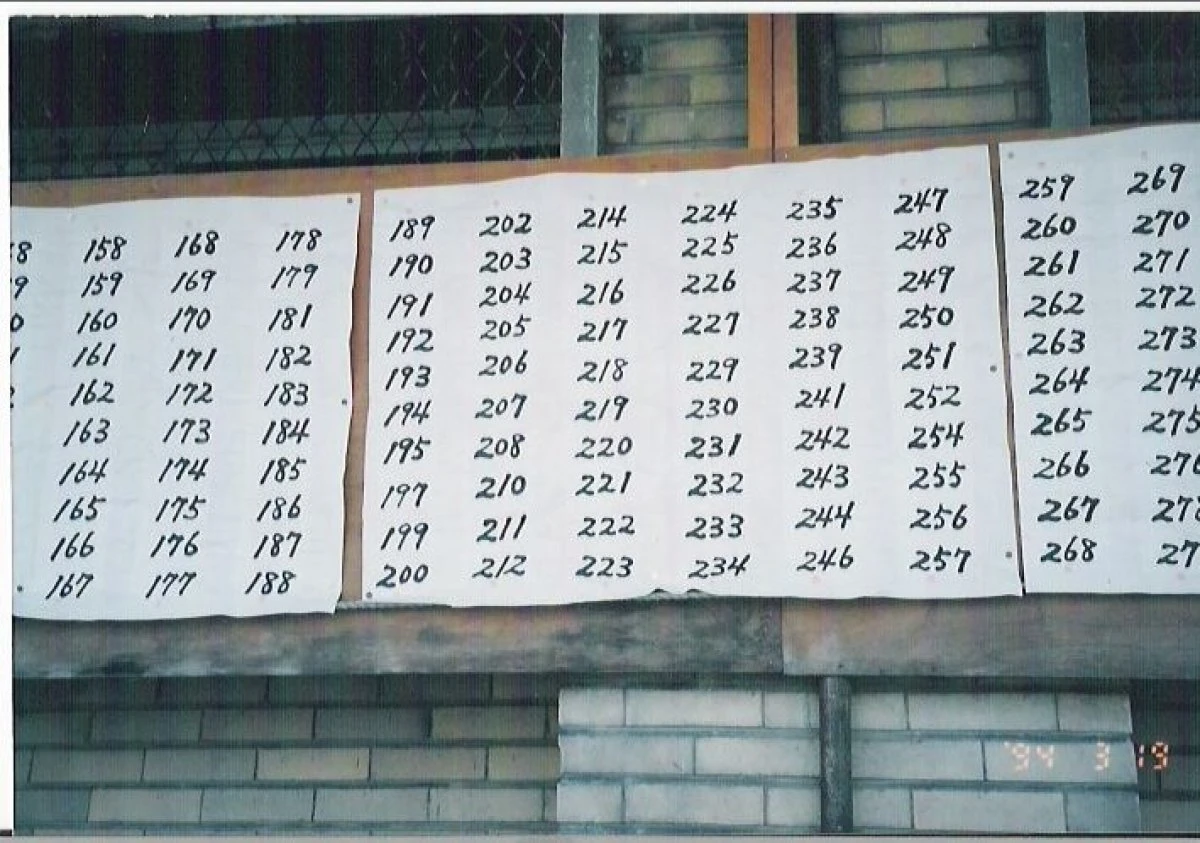 158
159
160
161
162
163
164
165
166
167
168
169
170
171
172
173
174
175
176
177
178
179
181
182
183
184
185
186
187
188
189
190
191
192
193
194
195
197
199
200
202
203
204
205
206
207
208
210
211
212
214
215
216
217
218
219
220
221
222
223
224
225
226
227
229
230
231
232
233
234
235
236
237
238
239
241
242
243
244
246
247
248
249
250
251
252
254
255
256
257
259
260
261
262
263
264
265
266
267
268
269
270
271
272
273
274
275
276
'94 3 19